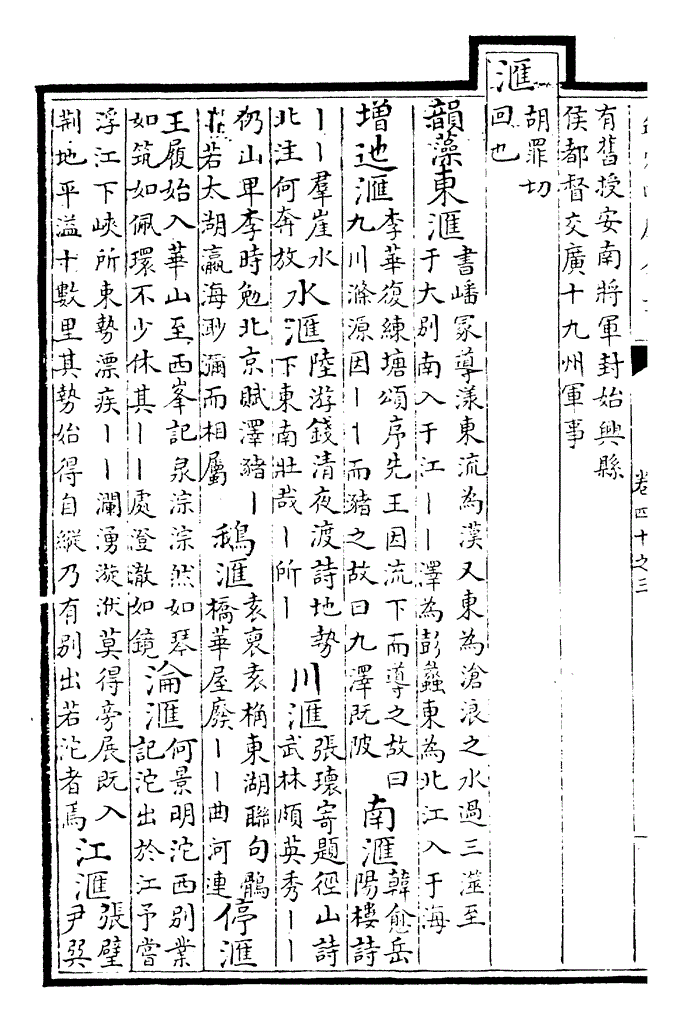 卷四十之三
有舊授安南將軍封始興縣
侯都督交廣十九州軍事
滙
胡罪切
回也
韻藻東滙
書嶓冢導漾東流為漢又東為滄浪之水過三澨至
于大别南入于江丨丨澤為彭蠡東為北江入于海
增迆滙
李華復練塘頌序先王因流下而導之故曰
九川滌源因丨丨而豬之故曰九澤既陂
南滙
韓愈岳
陽樓詩
丨丨羣崖水
北注何奔放
水滙
陸游錢清夜渡詩地勢
下東南壯哉丨所丨
川滙
張瓌寄題徑山詩
武林頗英秀丨丨
山畀李時勉北京賦澤豬丨
若太湖瀛海渺瀰而相屬
鵝滙
袁褧袁桷東湖聯句鶻
橋華屋廢丨丨曲河連
停滙
王履始入華山至西峯記泉淙淙然如琴
如筑如佩環不少休其丨丨處澄澈如鏡
淪滙
何景明沱西别業
記沱出於江予嘗
浮江下峽所東勢漂疾丨丨瀾湧漩洑莫得旁展既入
荆地平溢十數里其勢始得自縱乃有别出若沱者焉
江滙
張璧
尹㢲